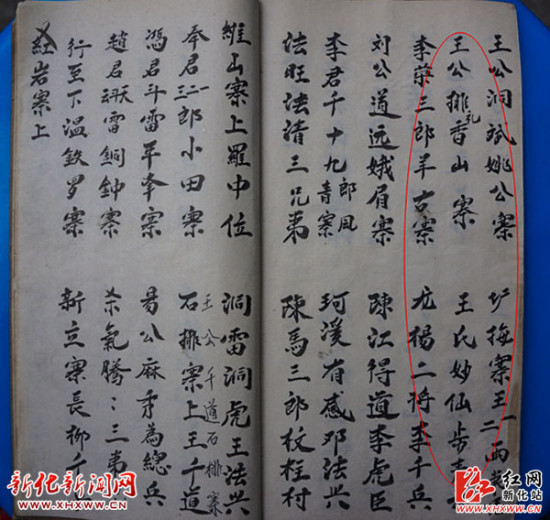 王公洞斌姚公寨 圹梅寨王一二両
王公排孔香山寨 王氏妙仙步
李荣三郎羊古寨 龙楊二将李千兵
刘公道远娥眉寨 陳江得道李虎臣
李君千十九郎風青寨 珂溪有感邓法兴
法旺法清三兄弟 陳馬三郎校桂村
維山寨上羅中位 洞雷洞虎王法兴
王公千道石排寨
奉君二郎小田寨 石排寨上王千道
馮君斗雷羊牽寨 易公麻矛為總兵
趙君天雷銅鈡寨 杀氣騰：三弟
行至下温欽罗寨 新立寨長柳千
紅岩寨上
新化新闻网
WWW.XHXWW.CN
红网
新化站
WWW.XHXWW.CN